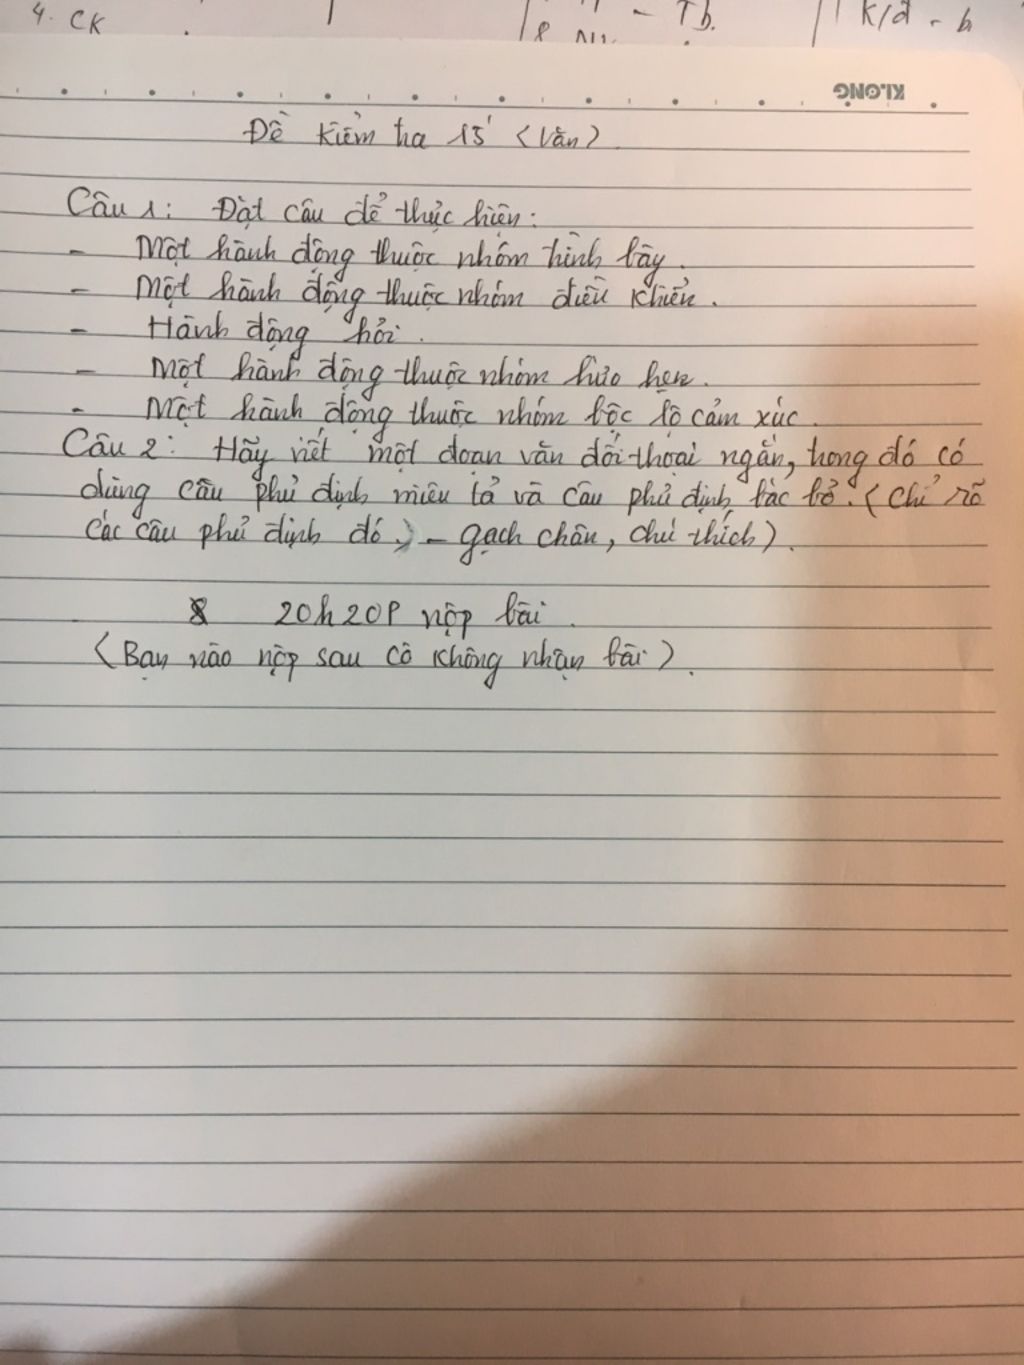 4. CK
- Tb.
K/đ - b
KLONG
Đề kiểm tra 15' (Văn)
Câu 1: Đặt câu để thực hiện:
- Một hành động thuộc nhóm trình bày.
- Một hành động thuộc nhóm điều khiển.
- Hành động hỏi.
- Một hành động thuộc nhóm hứa hẹn.
- Một hành động thuộc nhóm bộc lộ cảm xúc.
Câu 2: Hãy viết một đoạn văn đối thoại ngắn, trong đó có
dùng câu phủ định miêu tả và câu phủ định bác bỏ. (Chỉ rõ
các câu phủ định đó - gạch chân, chú thích).
20h20P nộp bài.
(Bạn nào nộp sau cô không nhận bài).